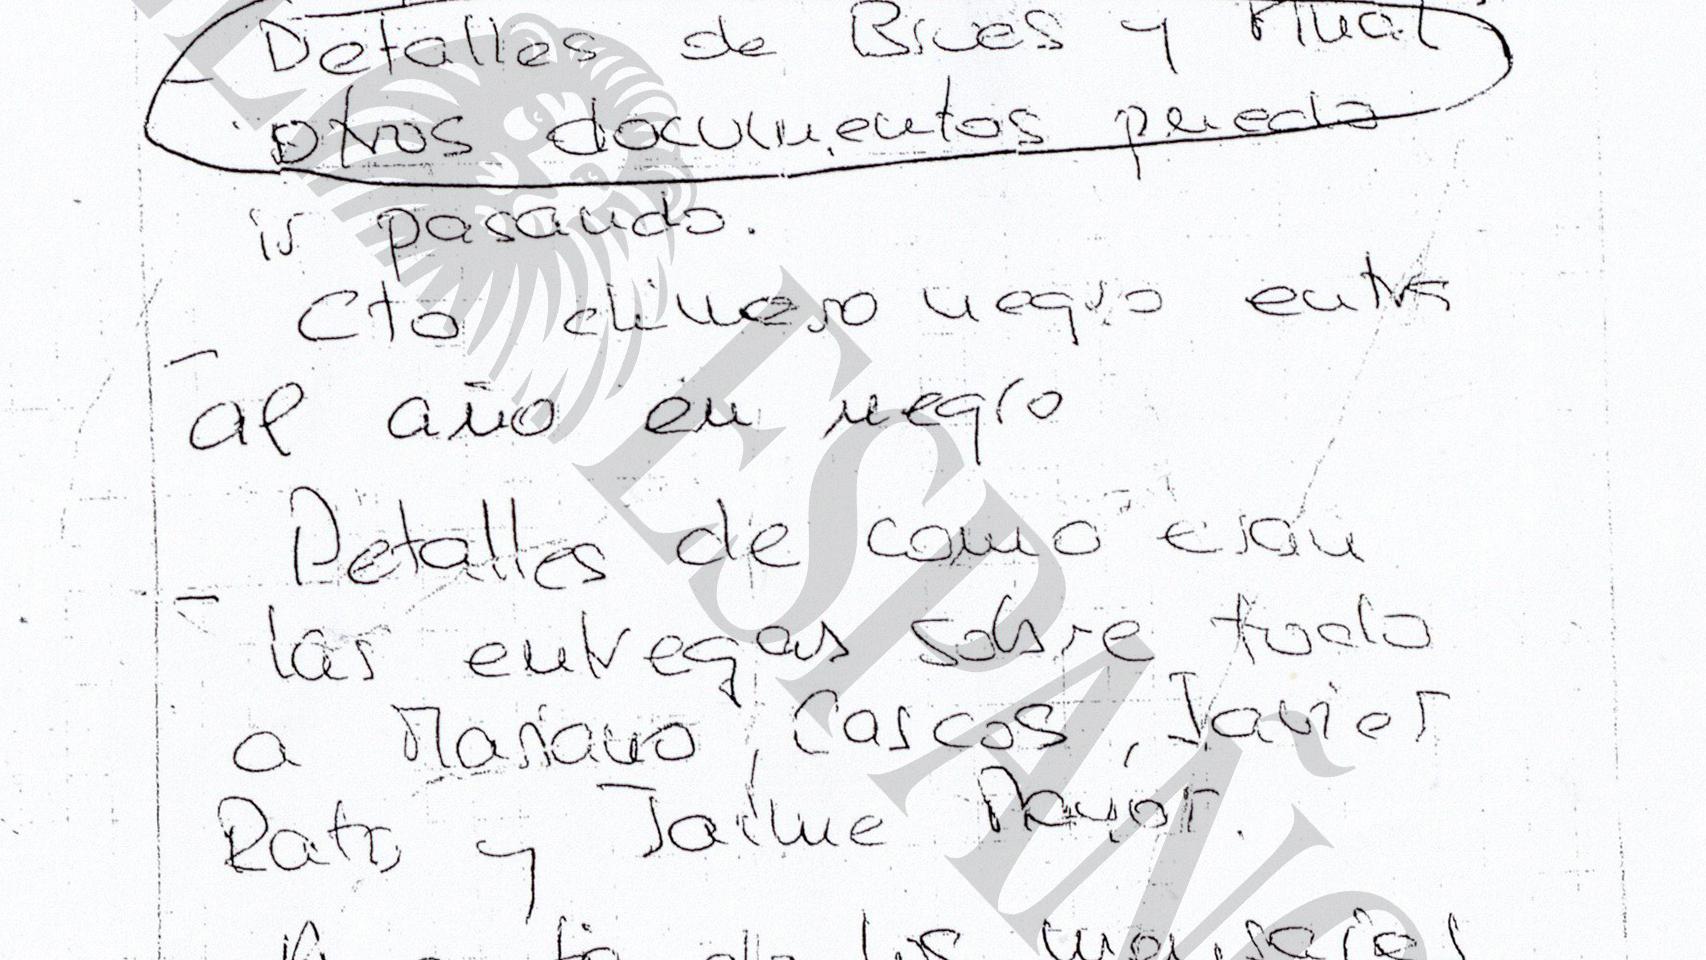 - Detalles de Blues y
otros documentos puedo
ir pasando.
- Cto dinero negro entra
al año en negro
- Detalles de como eran
las entregas sobre todo
a Mariano, Cascos, Javier
Rato y Jaime Mayor.
de los mensajes
EL ESPAÑOL